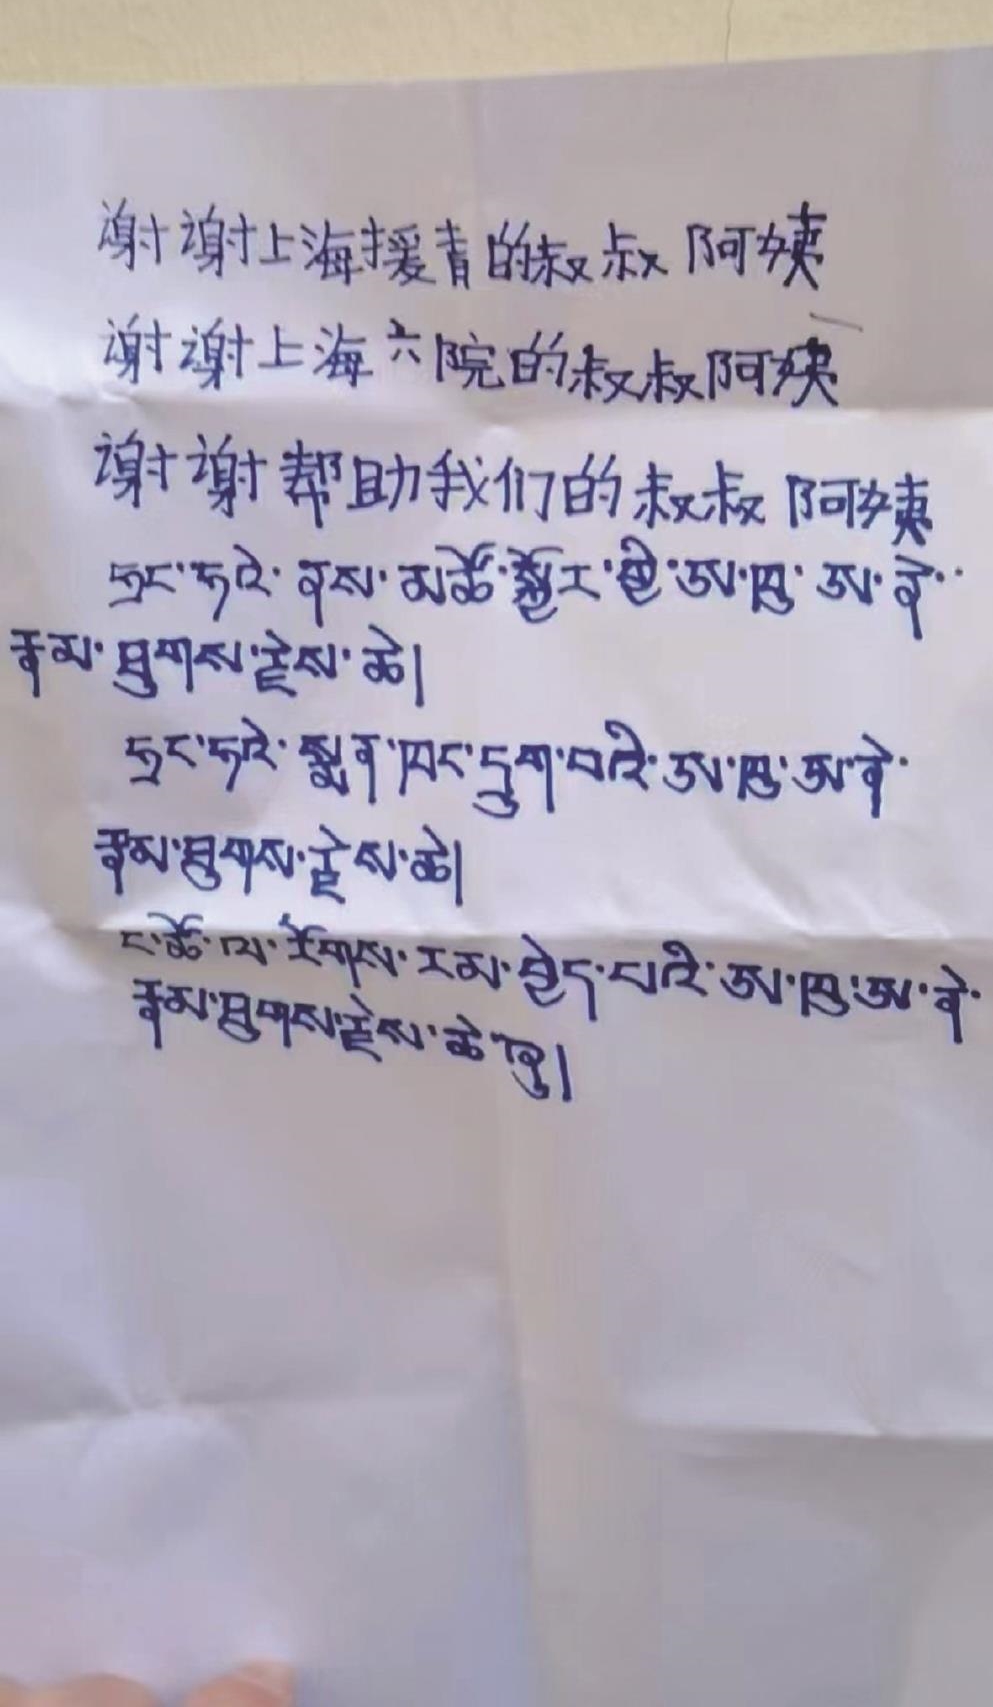 谢谢上海援青的叔叔阿姨
谢谢上海六院的叔叔阿姨
谢谢帮助我们的叔叔阿姨
ཧྲང་ཧེ་ ནས་ མཚོ་སྔོར་ ཨ་ཁུ་ ཨ་ནེ་
རྣམ་ ཐུགས་རྗེས་ ཆེ།
ཧྲང་ཧེ་ སྨན་ཁང་དྲུག་པའི་ཨ་ཁུ་ཨ་ནེ་
རྣམ་ཐུགས་རྗེས་ཆེ།
ང་ཚོ་ལ་ རོགས་རམ་བྱེད་པའི་ཨ་ཁུ་ཨ་ནེ་
རྣམ་ཐུགས་རྗེས་ཆེ་ཞུ།